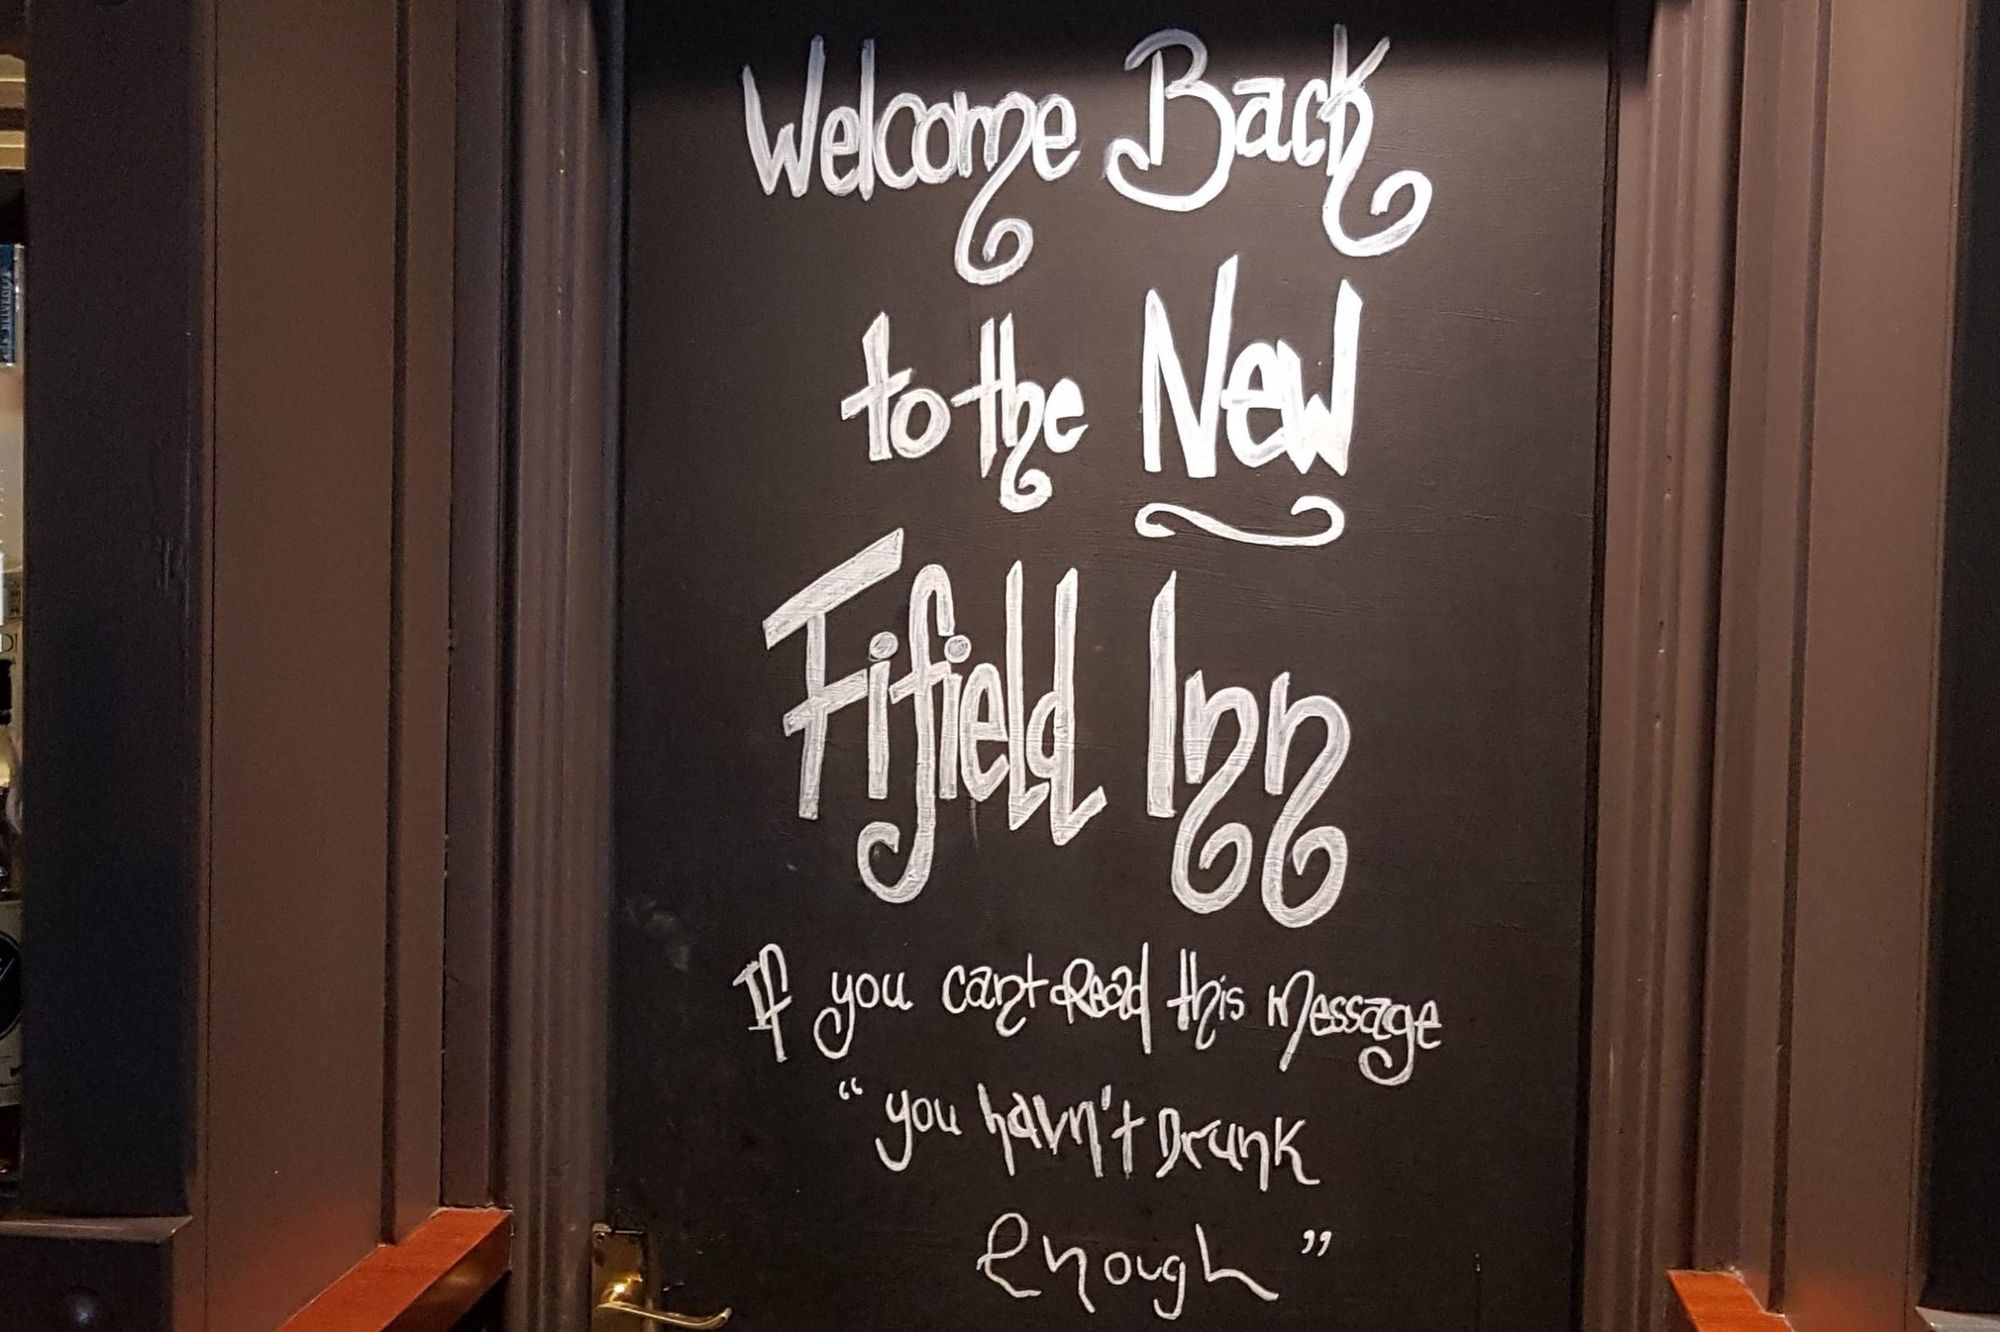 Welcome Back
to the New
Fifield Inn
If you cant Read this Message
“ you havn't Drunk
enough ”